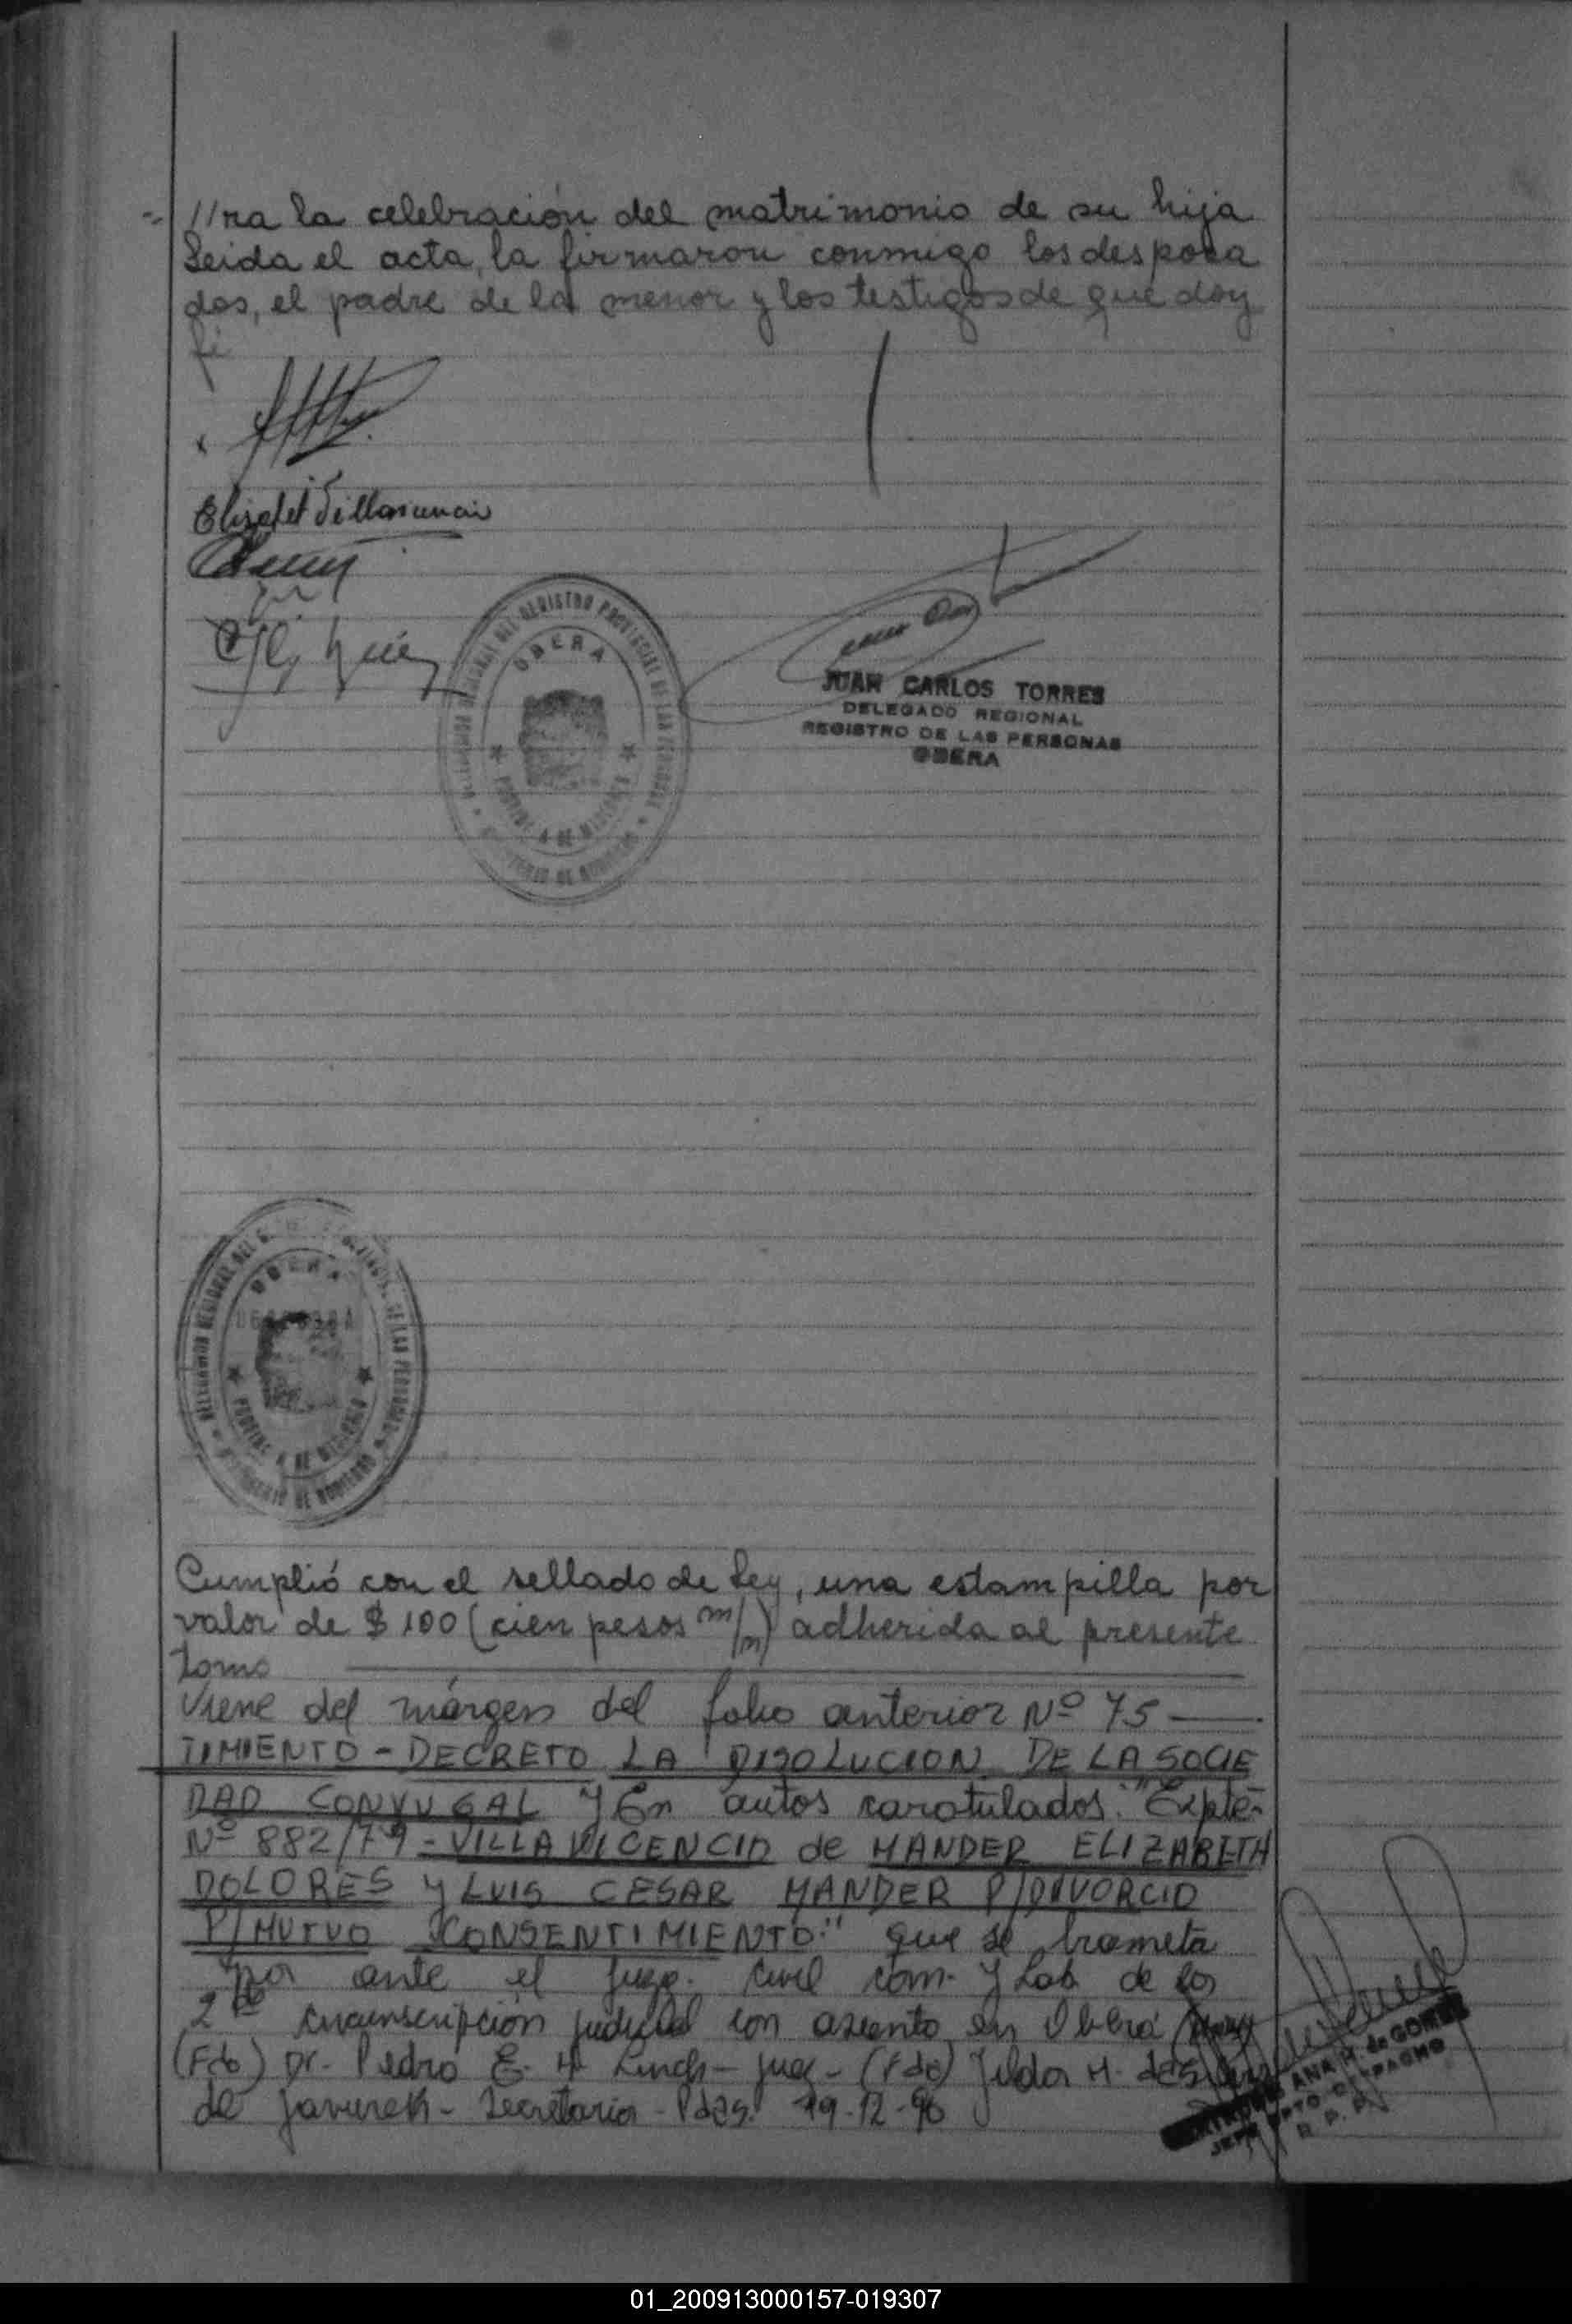 //ra la celebración del matrimonio de su hija
Leida el acta, la firmaron conmigo los desposa
dos, el padre de la menor y los testigos de que doy
fé
DELEGACION REGIONAL DEL REGISTRO PROVINCIAL DE LAS PERSONAS
OBERA
PROVINCIA DE MISIONES
MINISTERIO DE GOBIERNO
JUAN CARLOS TORRES
DELEGADO REGIONAL
REGISTRO DE LAS PERSONAS
OBERA
DELEGACION REGIONAL DEL
OBERA
PROVINCIA DE MISIONES
MINISTERIO DE GOBIERNO
Cumplió con el sellado de Ley, una estampilla por
valor de $ 100 (cien pesos m/n) adherida al presente
Tomo
Viene del márgen del folio anterior Nº 75
TIMIENTO - DECRETO LA DISOLUCION DE LA SOCIE
DAD CONYUGAL y En autos caratulados: "Expte-
Nº 882/79 - VILLAVICENCIO de MANDER ELIZABETH
DOLORES y LUIS CESAR MANDER P/DIVORCIO
P/MUTUO CONSENTIMIENTO" que se trameta
por ante el Juzg. Civil Com. y Lab de la
2da Circunscripción judicial con asiento en Oberá
(Fdo) Dr. Pedro E. Linch - Juez - (Fdo) Jilda H. de
de Javurek - Secretaria - Pdas. 19-12-96
ANA H. de GOMEZ
JEFE DPTO
R. P. P.
01_200913000157-019307